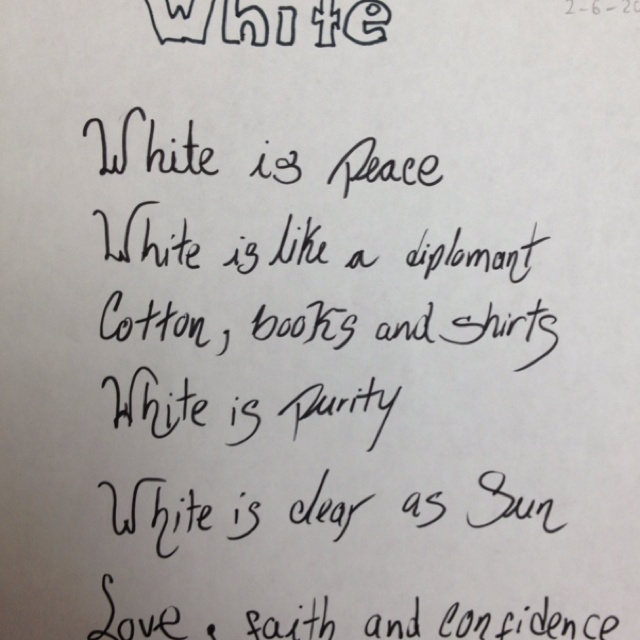 White
2-6-20
White is peace
White is like a diplomant
Cotton, books and shirts
White is purity
White is clear as Sun
Love, faith and confidence